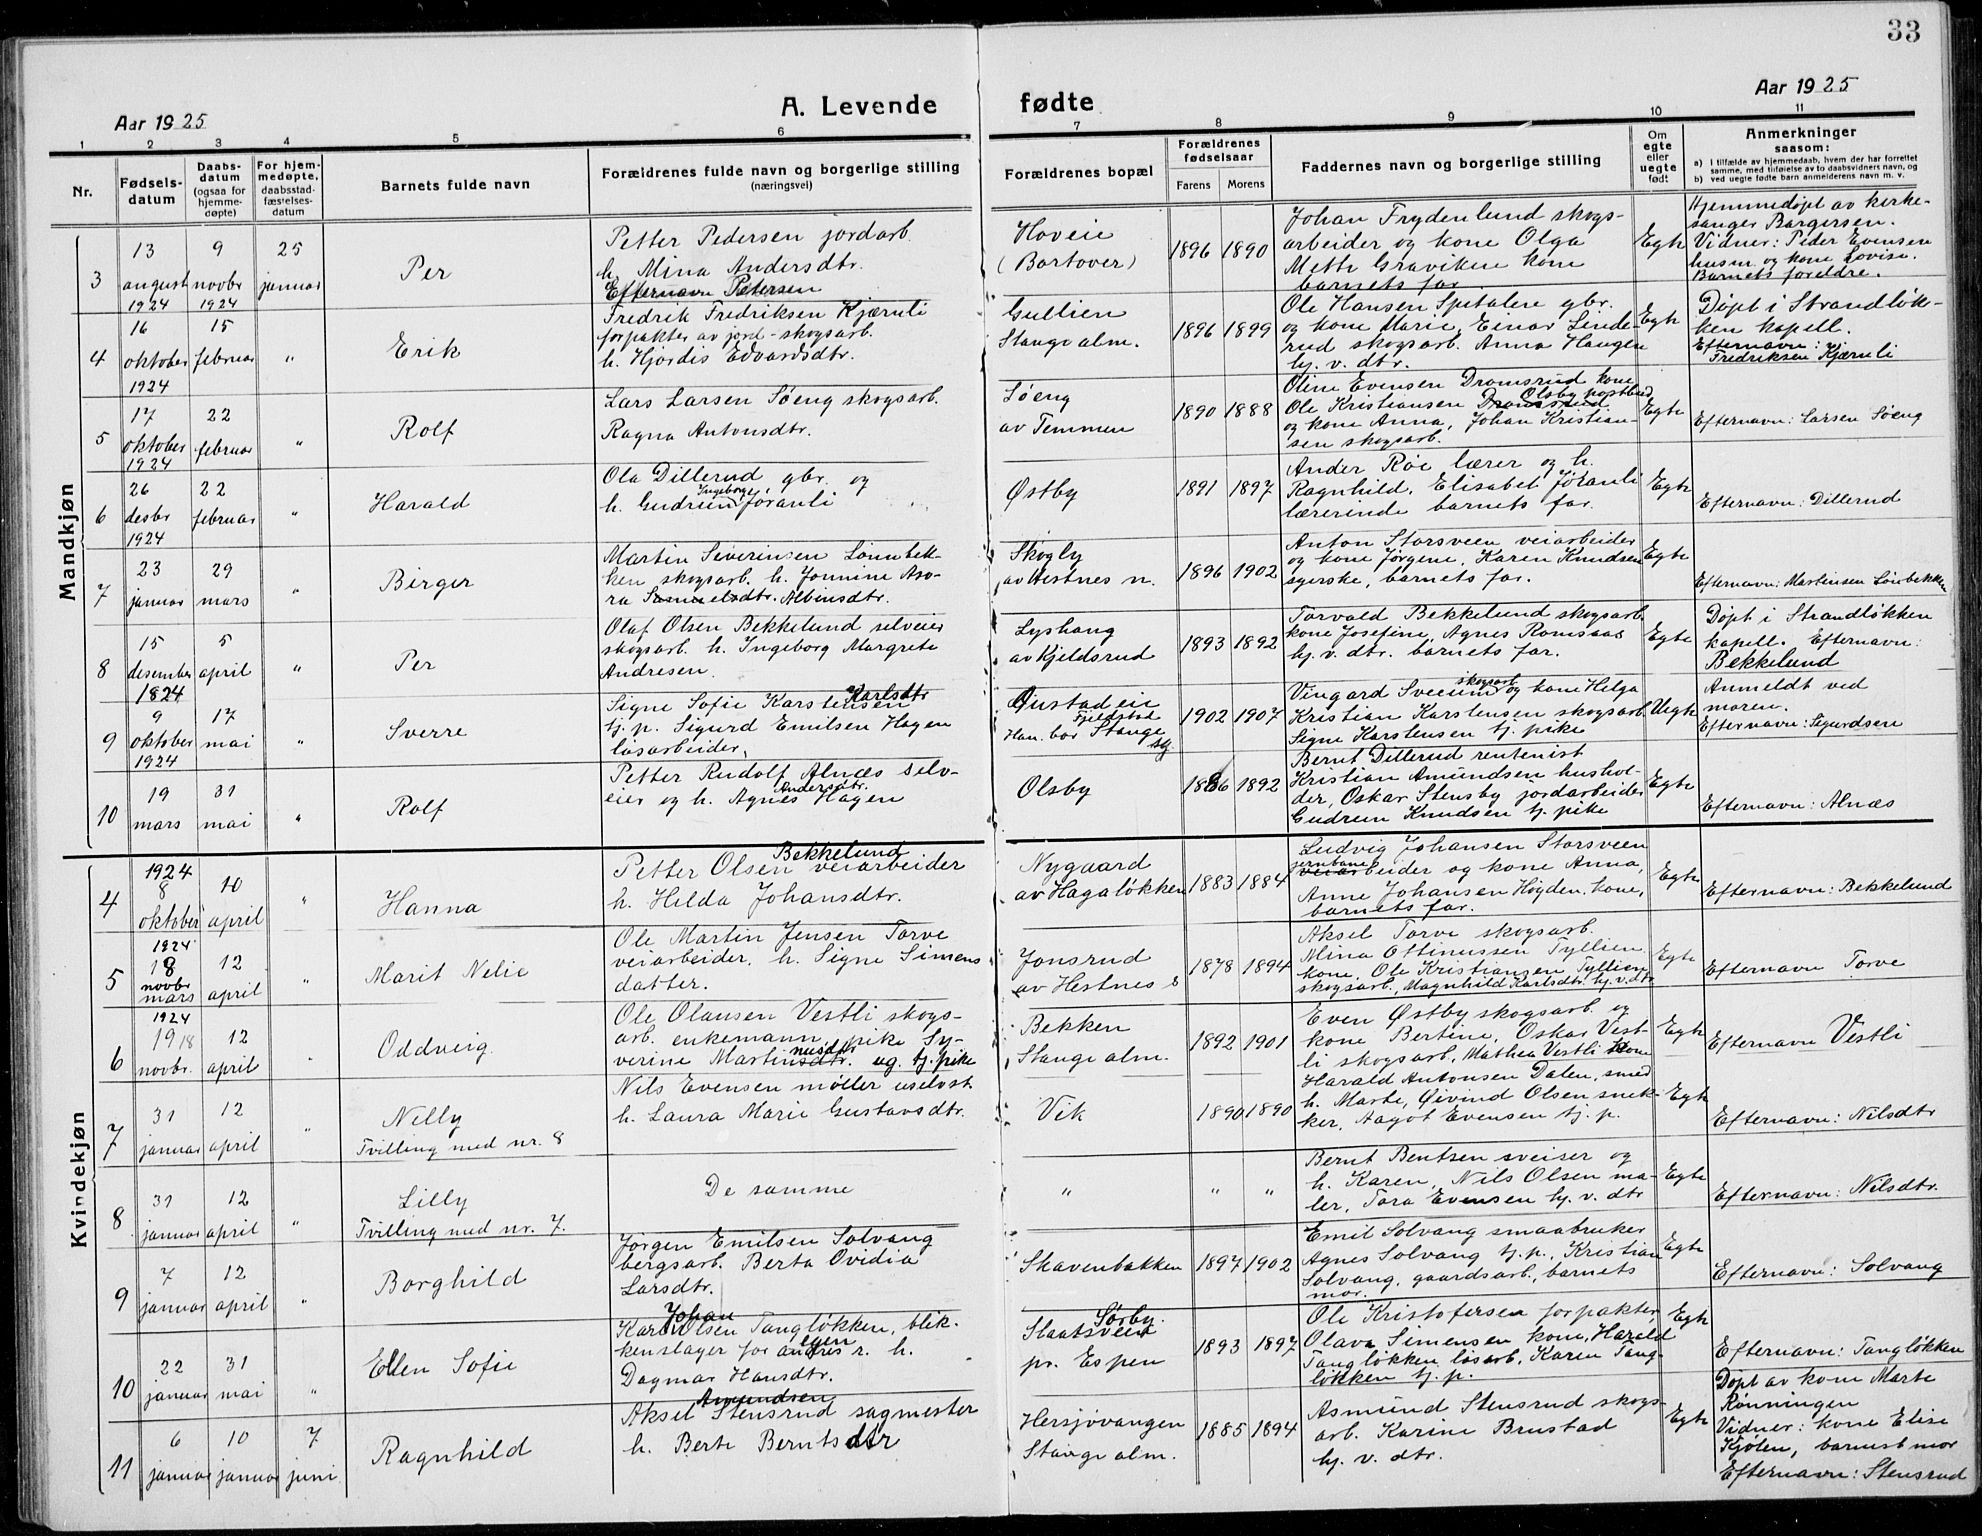 33
A. Levende fødte
Aar 1925
Aar 1925
1 2 3 4 5 6 7 8 9 10 11
Nr.
Fødsels-
datum
Daabs-
datum
(ogsaa for
hjemme-
døpte)
For hjem-
medøpte,
daabsstad-
fæstelses-
datum
Barnets fulde navn
Forældrenes fulde navn og borgerlige stilling
(næringsvei)
Forældrenes bopæl
Forældrenes
fødselsaar
Farens Morens
Faddernes navn og borgerlige stilling
Om
egte
eller
uegte
født
Anmerkninger
saasom:
a) I tilfælde av hjemmedaab, hvem der har forrettet
samme, med tilføielse av to daabsvidners navn, og
b) ved uegte fødte barn anmelderens navn m. v.
Mandkjøn
3
13
august
1924
9
novbr
1924
25
januar
Per
Petter Pedersen jordarb.
h. Mina Andersdtr.
Efternavn Petersen
Hoveie
(Bortover)
1896 1890
Johan Frydenlund skogs-
arbeider og kone Olga
Mette Graviken kone
barnets far
Egte
Hjemmedøpt av kirke-
sanger Børgersen.
Vidner: Peder Evensen
husm. og kone Lovise.
Barnets foreldre.
4
16
oktober
1924
15
februar
"
Erik
Fredrik Fredriksen Kjærnli
forpakter av jord - skogsarb.
h. Hjørdis Edvardsdtr.
Gullien
Stange alm.
1896 1899
Ole Hansen Spitalere gbr.
og kone Marie, Einar Linde-
rud skogsarb. Anna Haugen
hj. v. dtr.
Egte
Døpt i Strandløk-
ken kapell.
Efternavn:
Fredriksen Kjærnli
5
17
oktober
1924
22
februar
"
Rolf
Lars Larsen Søeng skogsarb.
Ragna Antonsdtr.
Søeng
av Temmen
1890 1888
Oline Evensen Dromsrud kone
Ole Kristiansen Dromsrud Olsby postbud
og kone Anna, Johan Kristian-
sen skogsarb.
Egte
Efternavn: Larsen Søeng
6
26
desbr
1924
22
februar
"
Harald
Ola Dillerud gbr. og
h. Gudrun Ingeborg Joranli
Østby
1891 1897
Ander Røe lærer og h.
Ragnhild. Elisabet Joranli
lærerinde barnets far.
Egte
Efternavn: Dillerud
7
23
januar
29
mars
"
Birger
Martin Severinsen Lønnbek-
ken skogsarb. h. Jonnine Aso-
ra Samuelsdtr. Albinsdtr.
Skogly
av Hestnes n.
1896 1902
Anton Storsveen veiarbeider
og kone Jørgene. Karen Knudsen
syerske, barnets far.
Egte
Efternavn: Martinsen Lønbekken
8
15
desember
1824
5
april
"
Per
Olaf Olsen Bekkelund selveier
skogsarb. h. Ingeborg Margrete
Andresen.
Lyshaug
av Kjeldsrud
1893 1892
Torvald Bekkelund skogsarb.
kone Josefine, Agnes Romsaas
hj. v. dtr. barnets far.
Egte
Døpt i Strandløkken
kapell. Efternavn:
Bekkelund
9
9
oktober
1924
17
mai
"
Sverre
Signe Sofie Karstensen Karlsdtr
tj. p. Sigurd Emilsen Hagen
løsarbeider,
Øiustad eie
Fjeldstue
Han. bor Stange
sg.
1902 1907
Vingard Sveum skogsarb og kone Helga
Kristian Karstensen skogsarb.
Signe Karstensen tj. pike
Uegte
Anmeldt ved
moren.
Efternavn: Sigurdsen
10
19
mars
31
mai
"
Rolf
Petter Rudolf Alnæs selv-
eier og h. Agnes Andersdtr. Hagen
Olsby
1886 1892
Bernt Dillerud rentenist
Kristian Amundsen hushol-
der, Oskar Stensby jordarbeider
Gudrun Knudsen tj. pike
Egte
Efternavn: Alnæs
Kvindekjøn
4
1924
8
oktober
10
april
"
Hanna
Petter Olsen Bekkelund veiarbeider
h. Hilda Johansdtr.
Nygaard
av Hagaløkken
1883 1884
Ludvig Johansen Storsveen
jernbane veiarbeider og kone Anna,
Anne Johansen Høgden kone,
barnets far.
Egte
Efternavn: Bekkelund
5
1924
18
novbr
mars
12
april
"
Marit Nelie
Ole Martin Jensen Torve
veiarbeider. h. Signe Simens
datter.
Jonsrud
av Hestnes s
1878 1894
Aksel Torve skogsarb.
Mina Ottinussen Tyllien
kone. Ole Kristiansen Tyllien
skogsarb., Magnhild Karlsdtr hj. v. dtr
Egte
Efternavn Torve
6
1924
19 18
novbr.
12
april
"
Oddveig
Ole Olausen Vestli skogs-
arb. enkemann, pike Sy-
verine Martinsdtr. nusdtr ug. tj. pike
Bekken
Stange alm.
1892 1901
Even Østby skogsarb. og
kone Bertine, Oskar Vest-
li skogsarb, Mathea Vestli kone
Egte
Efternavn Vestli
7
31
januar
12
april
"
Nelly
Tvilling med nr. 8
Nils Evensen møller uselvst.
h. Laura Marie Gustavsdtr.
Vik
1890 1890
Harald Antonsen Dalen, smed
h. Marte, Øivind Olsen snek-
ker, Aagot Evensen tj. p.
Egte
Efternavn: Nilsdtr
8
31
januar
12
april
"
Lilly
Tvilling med nr. 7.
De samme
"
" "
Bernt Bentsen sveiser og
h. Karen, Nils Olsen ma-
ler, Tora Evensen hj. v. dtr
Egte
Efternavn: Nilsdtr.
9
7
januar
12
april
"
Borghild
Jørgen Emilsen Solvang
bergsarb. Berta Ovidia
Larsdtr.
Skavenbakken
1897 1902
Emil Solvang smaabruker
Agnes Solvang tj. p., Kristian
Solvang, gaardsarb., barnets
mor.
Egte
Efternavn: Solvang
10
22
januar
31
mai
"
Ellen Sofie
Karl Johan Olsen Tangløkken, blik-
kenslager for andres egen r. h.
Dagmar Hansdtr.
Slaatsveen Sørby.
pr. Espen
1893 1897
Ole Kristofersen forpakter,
Olava Simensen kone, Harald
Tangløkken løsarb, Karen Tang-
løkken tj. p.
Egte
Efternavn: Tangløkken
11
6
januar
10
januar
7
juni
Ragnhild
Aksel Amundsen Stensrud sagmester
h. Berte Berntsdtr
Hersjøvangen
Stange alm.
1885 1894
Asmund Stensrud skogs-
arb. Karine Brustad
hj. v. dtr.
Egte
Døpt av kone Marte
Rønningen
Vidner: kone Elise
Kjølen, barnets mor
Efternavn: Stensrud